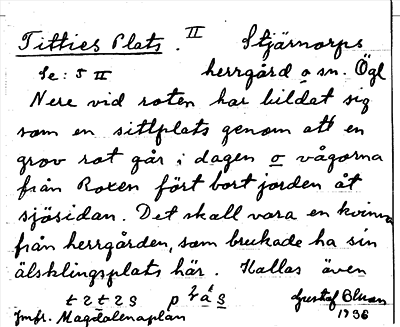 Titties Plats. II Stjärnorps
Se: 5 II herrgård o sn. Ögl
Nere vid roten har bildat sig
som en sittplats genom att en
grov rot går i dagen o vågorna
från Roxen fört bort jorden åt
sjösidan. Det skall vara en kvinna
från herrgården, som brukade ha sin
älsklingsplats här. Kallas även
Gustaf
Jmfr. Magdalenaplan 1936